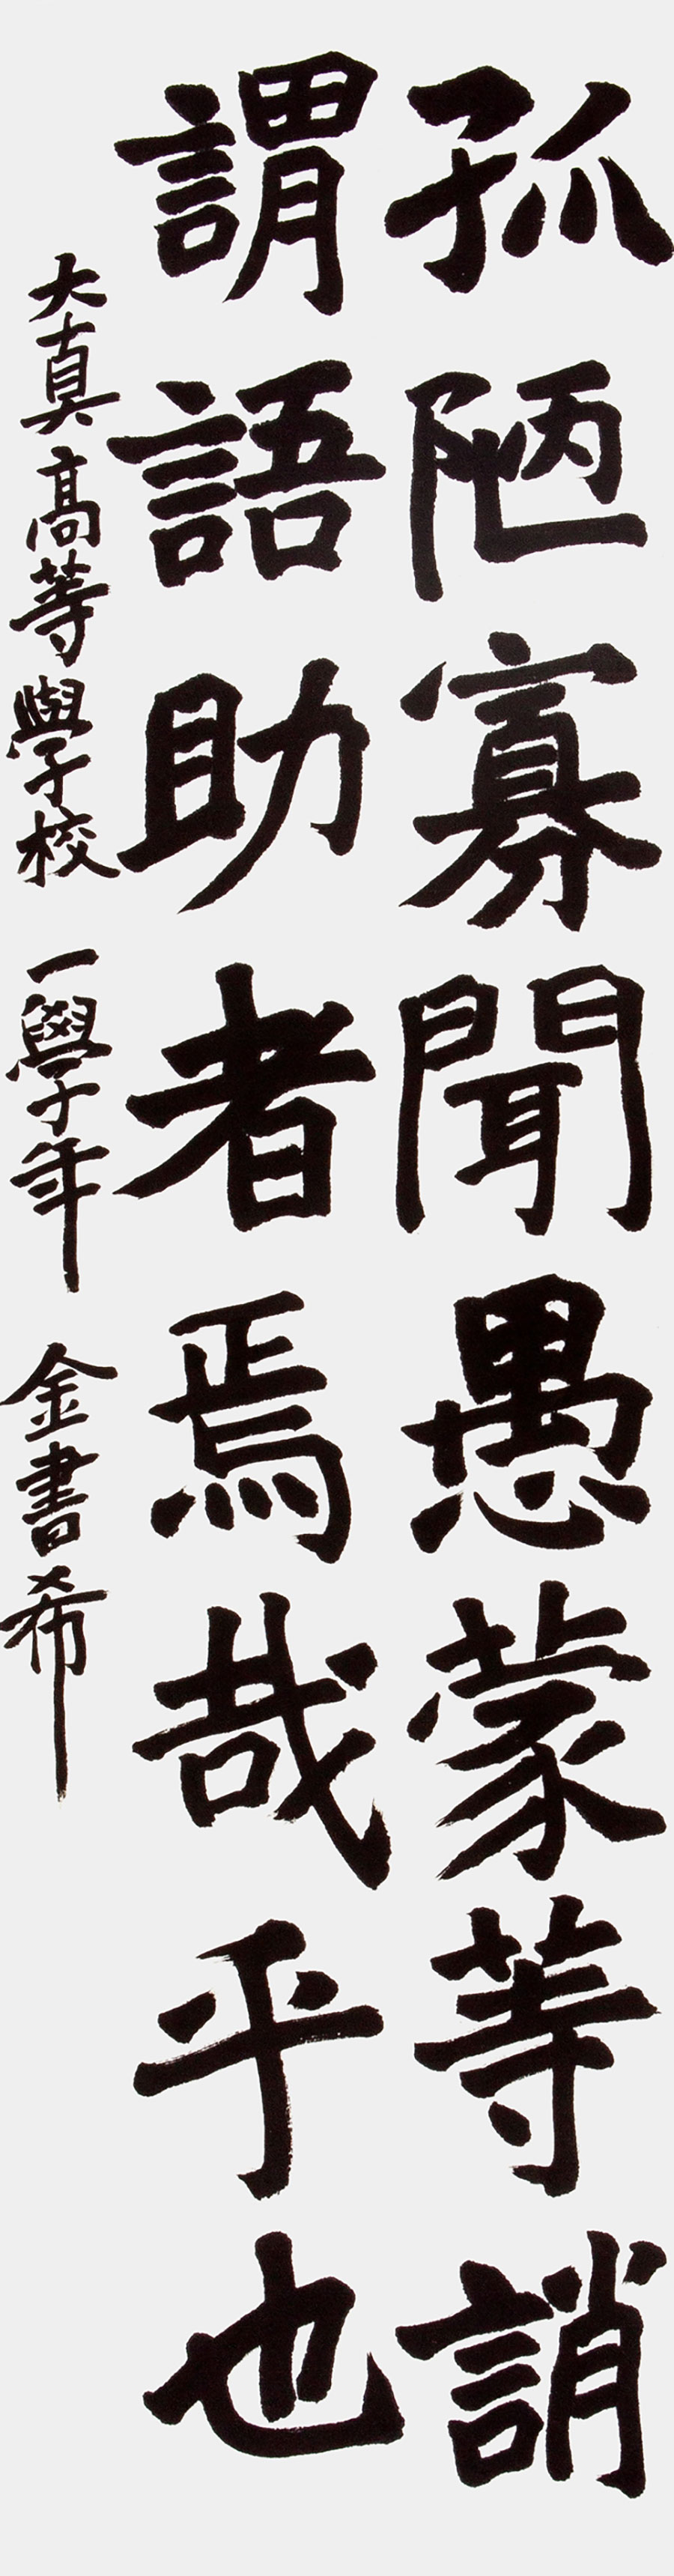 孤陋寡聞愚蒙等誚
謂語助者焉哉乎也
大真高等學校 一學年 金書希